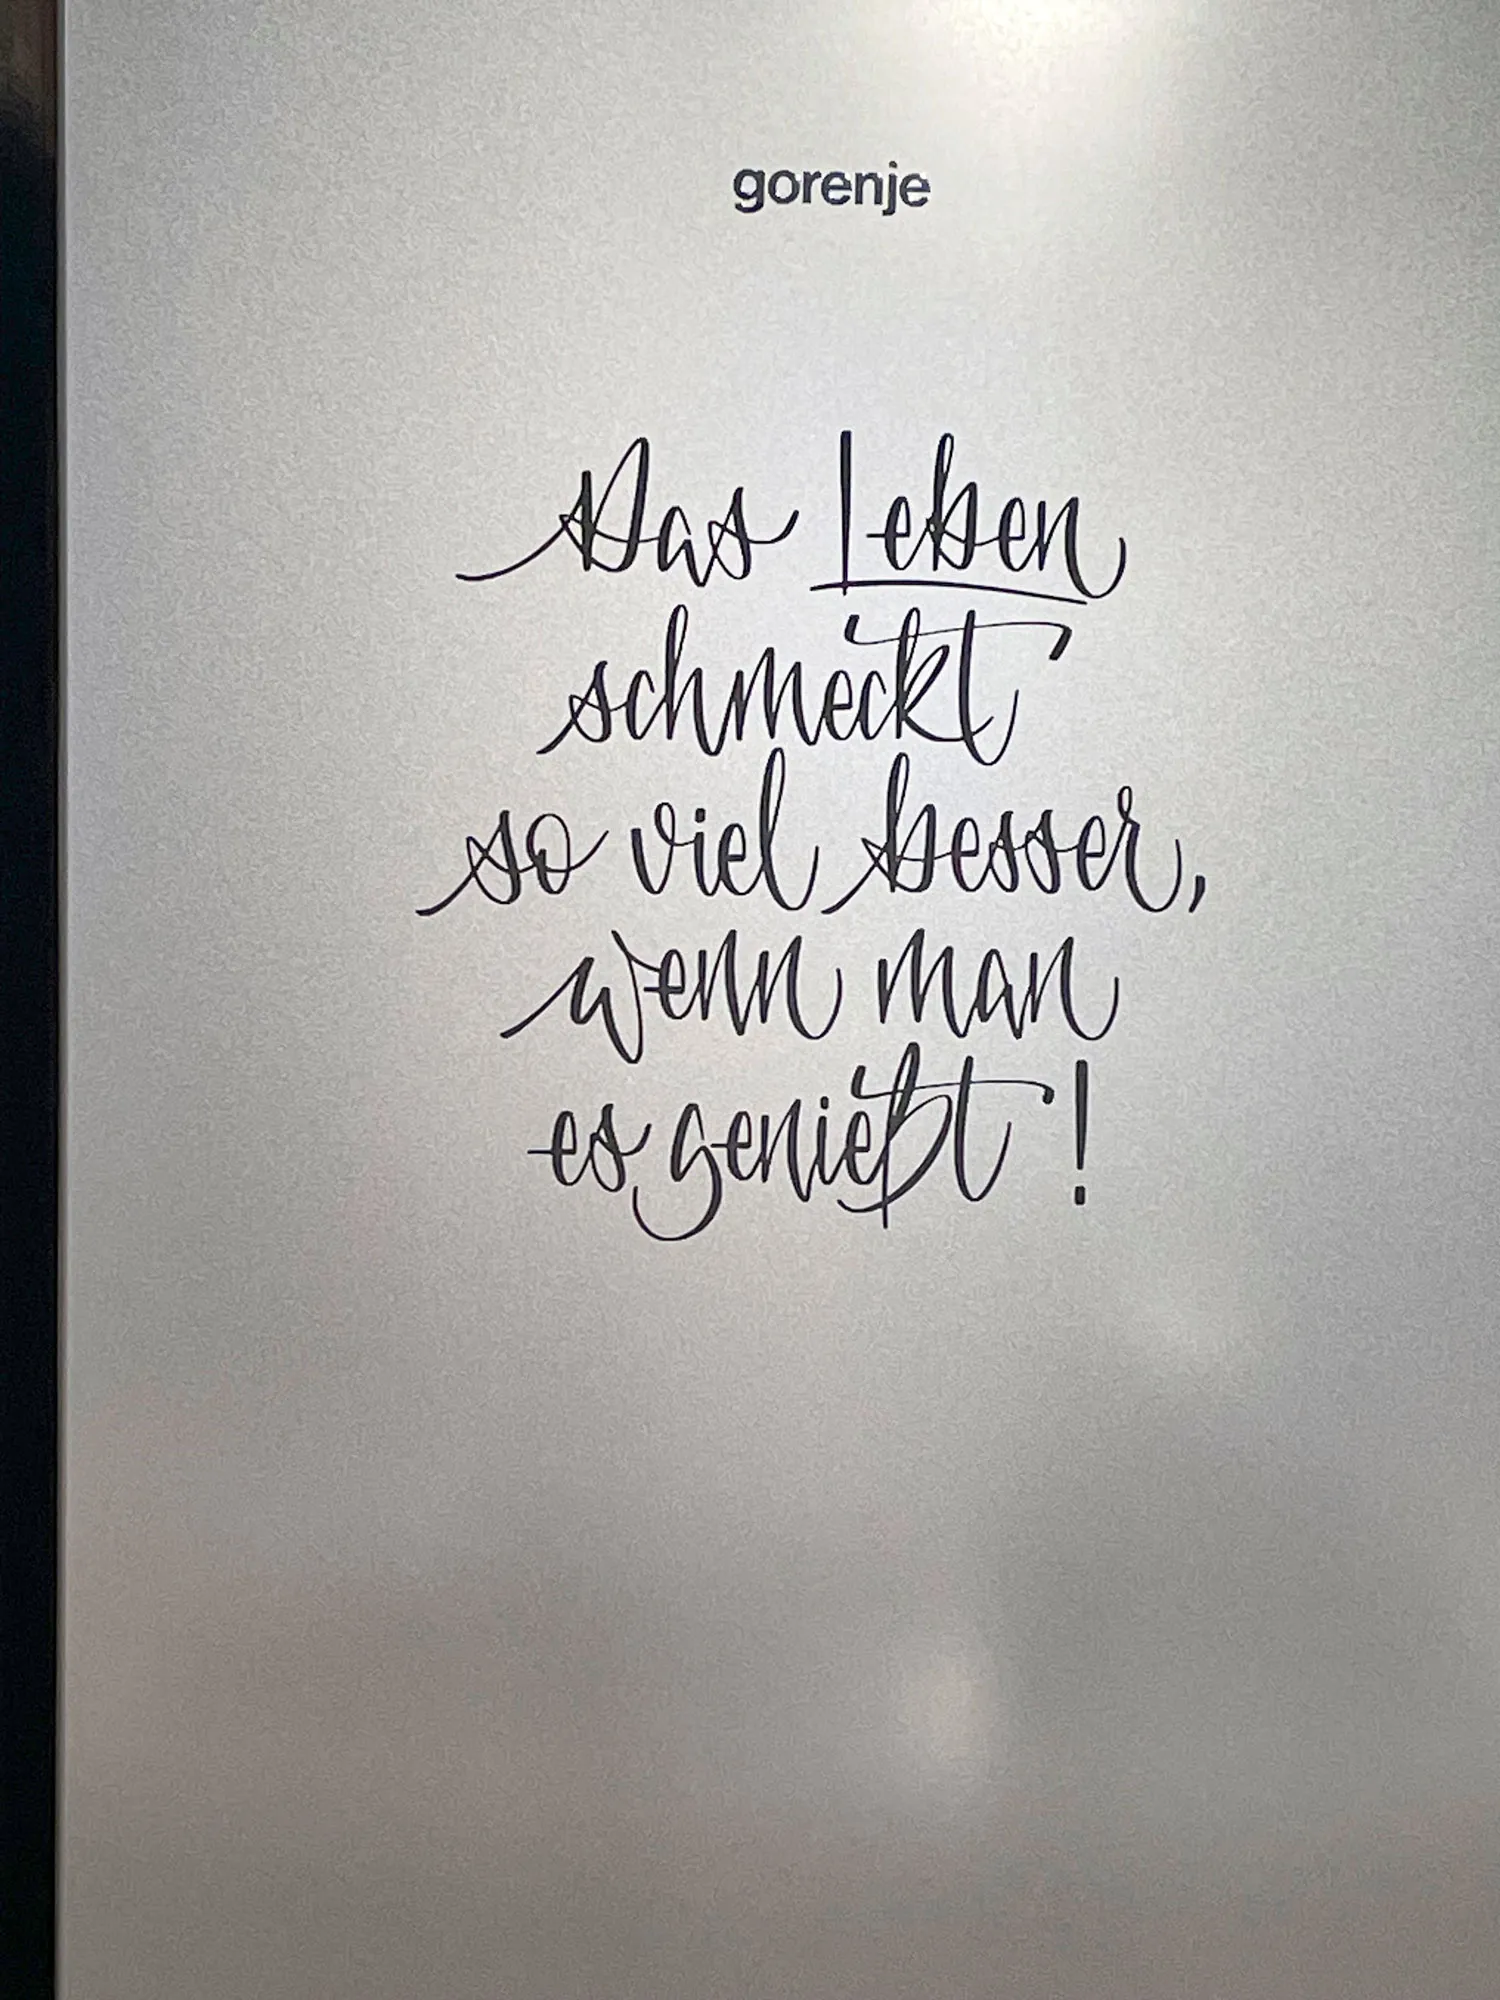 gorenje
Das Leben
schmeckt
so viel besser,
wenn man
es genießt!